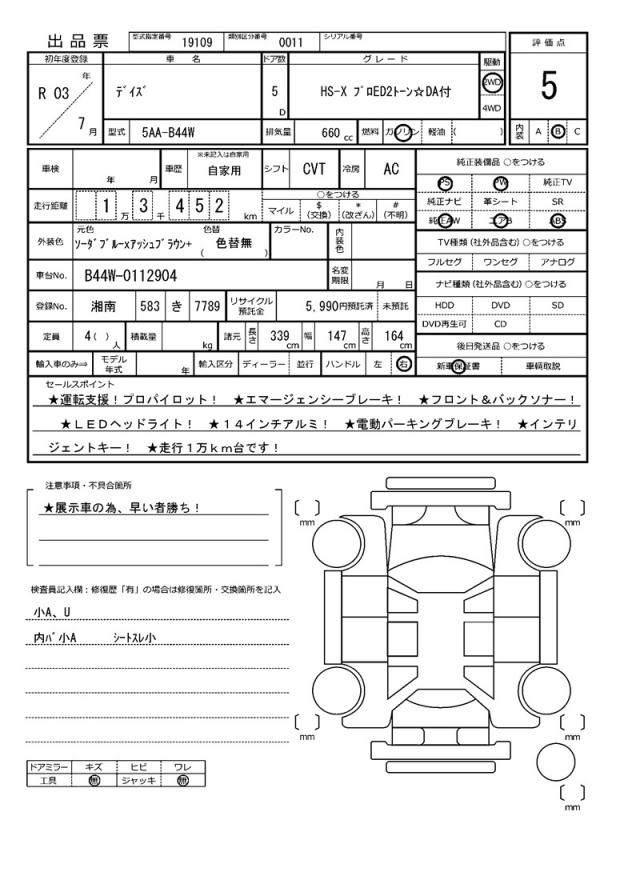 出品票 型式指定番号 19109 類別区分番号 0011 シリアル番号
評価点
5
初年度登録 車名 ドア数 グレード 駆動
R 03 年 7 月
デイズ 5 D HS-X プロED2トーン☆DA付 2WD 4WD
型式 5AA-B44W 排気量 660 cc 燃料 ガソリン 軽油 ( ) 内装 A B C
車検 年 月 車歴 ※未記入は自家用 自家用 シフト CVT 冷房 AC
純正装備品 ○をつける
PS PW 純正TV
走行距離 1 万 3 千 4 5 2 km ○をつける
マイル $ (交換) * (改ざん) # (不明)
純正ナビ 革シート SR
純正AW エアB ABS
外装色 元色 ソーダブルーxアッシュブラウン+ 色替 ( 色替無 ) カラーNo. 内装色
TV種類 (社外品含む) ○をつける
フルセグ ワンセグ アナログ
車台No. B44W-0112904 名変期限 月 日
ナビ種類 (社外品含む) ○をつける
登録No. 湘南 583 き 7789 リサイクル預託金 5,990円預託済 未預託
HDD DVD SD
DVD再生可 CD
定員 4( ) 人 積載量 kg 諸元 長さ 339 cm 幅 147 cm 高さ 164 cm
後日発送品 ○をつける
輸入車のみ⇒ モデル年式 年 輸入区分 ディーラー 並行 ハンドル 左 右
新車保証書 車輌取説
セールスポイント
★運転支援！プロパイロット！ ★エマージェンシーブレーキ！ ★フロント＆バックソナー！
★ＬＥＤヘッドライト！ ★１４インチアルミ！ ★電動パーキングブレーキ！ ★インテリ
ジェントキー！ ★走行１万ｋｍ台です！
注意事項・不具合箇所
★展示車の為、早い者勝ち！
検査員記入欄：修復歴「有」の場合は修復箇所・交換箇所を記入
小A、U
内ﾊﾞ小A ｼｰﾄｽﾚ小
ドアミラー キズ ヒビ ワレ
工具 無 ジャッキ 無
〔 〕 mm
〔 〕 mm
〔 〕 mm
〔 〕 mm
〔 〕 mm